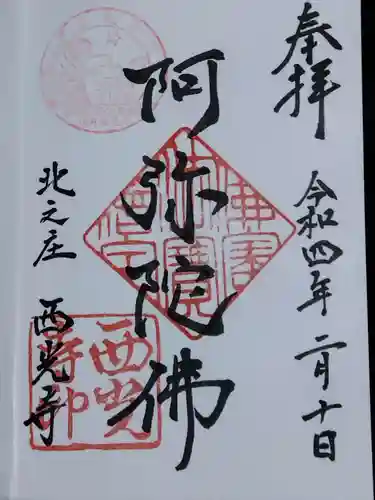 奉拝
令和四年二月十日
阿弥陀佛
北之庄
西光寺
西光寺印